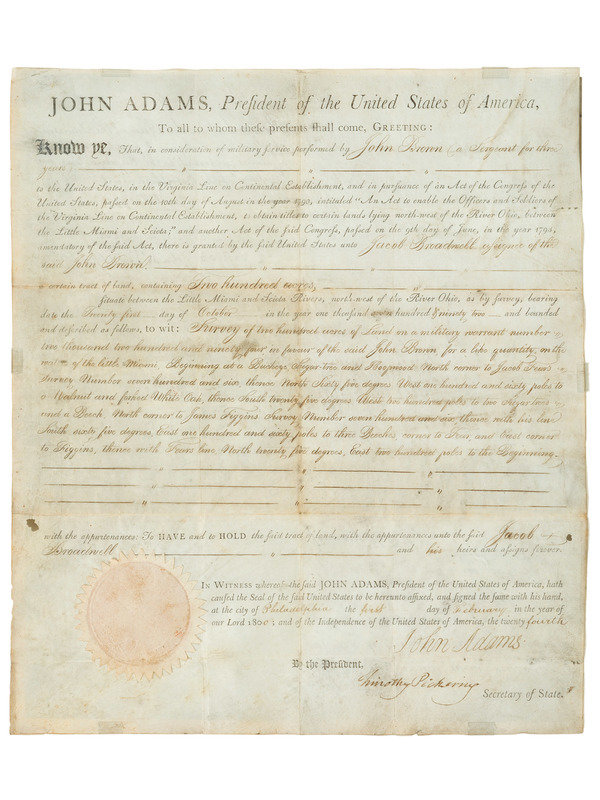 JOHN ADAMS, Preſident of the United States of America,
To all to whom theſe preſents ſhall come, GREETING:
Know ye, That, in conſideration of military ſervice performed by John Brown (a Sergeant for three
years)
to the United States, in the Virginia Line on Continental Eſtabliſhment, and in purſuance of an Act of the Congreſs of the
United States, paſſed on the 10th day of Auguſt in the year 1790, intituled "An Act to enable the Officers and Soldiers of
the Virginia Line on Continental Eſtabliſhment, to obtain titles to certain lands lying north-weſt of the River Ohio, between
the Little Miami and Sciota;" and another Act of the ſaid Congreſs, paſſed on the 9th day of June, in the year 1794,
amendatory of the ſaid Act, there is granted by the ſaid United States unto Jacob Broadwell aſsignee of the
said John Brown
a certain tract of land, containing Two hundred acres,
ſituate between the Little Miami and Sciota Rivers, north-weſt of the River Ohio, as by ſurvey, bearing
date the Twenty first day of October in the year one thouſand seven hundred & ninety two and bounded
and deſcribed as follows, to wit: Survey of two hundred acres of Land on a military warrant number
two thousand two hundred and ninety four in favour of the said John Brown for a like quantity, on the
of the little Miami, Beginning at a Buckeye Sugar tree and North corner to Jacob
Survey Number seven hundred and six, thence North Sixty five degrees West one hundred and sixty poles to
a Walnut and White Oak, thence South twenty five degrees West two hundred poles to two Sugar trees
and a Beech North corner to James Survey Number seven hundred and six, thence with his line
South sixty five degrees, East one hundred and sixty poles to three Beeches corner to and East corner
to thence with line North twenty five degrees, East two hundred poles to the Beginning.
with the appurtenances: To HAVE and to HOLD the ſaid tract of land, with the appurtenances unto the ſaid Jacob
Broadwell and his heirs and aſſigns forever.
IN WITNESS whereof the ſaid JOHN ADAMS, Preſident of the United States of America, hath
cauſed the Seal of the ſaid United States to be hereunto affixed, and ſigned the ſame with his hand,
at the city of Philadelphia the first day of February, in the year of
our Lord 1800; and of the Independence of the United States of America, the twenty fourth
John Adams
By the Preſident,
Timothy Pickering
Secretary of State.